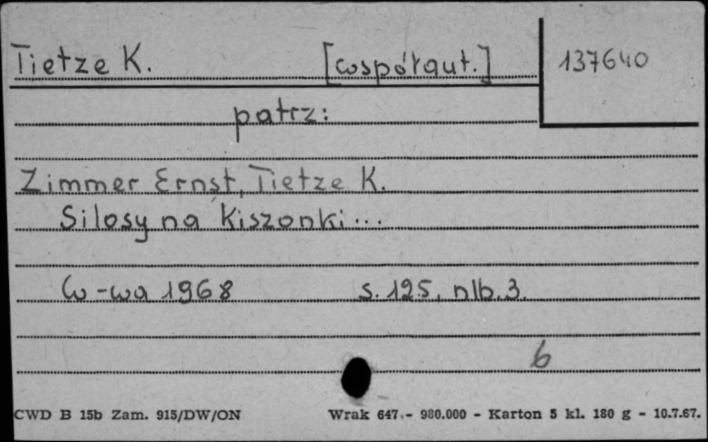 Tietze K. [współaut.] 137640
patrz:
Zimmer Ernst, Tietze K.
Silosy na Kiszonki...
W-wa 1968 s. 125, nlb. 3.
6
CWD B 15b Zam. 915/DW/ON Wrak 647.- 980.000 - Karton 5 kl. 180 g - 10.7.67.